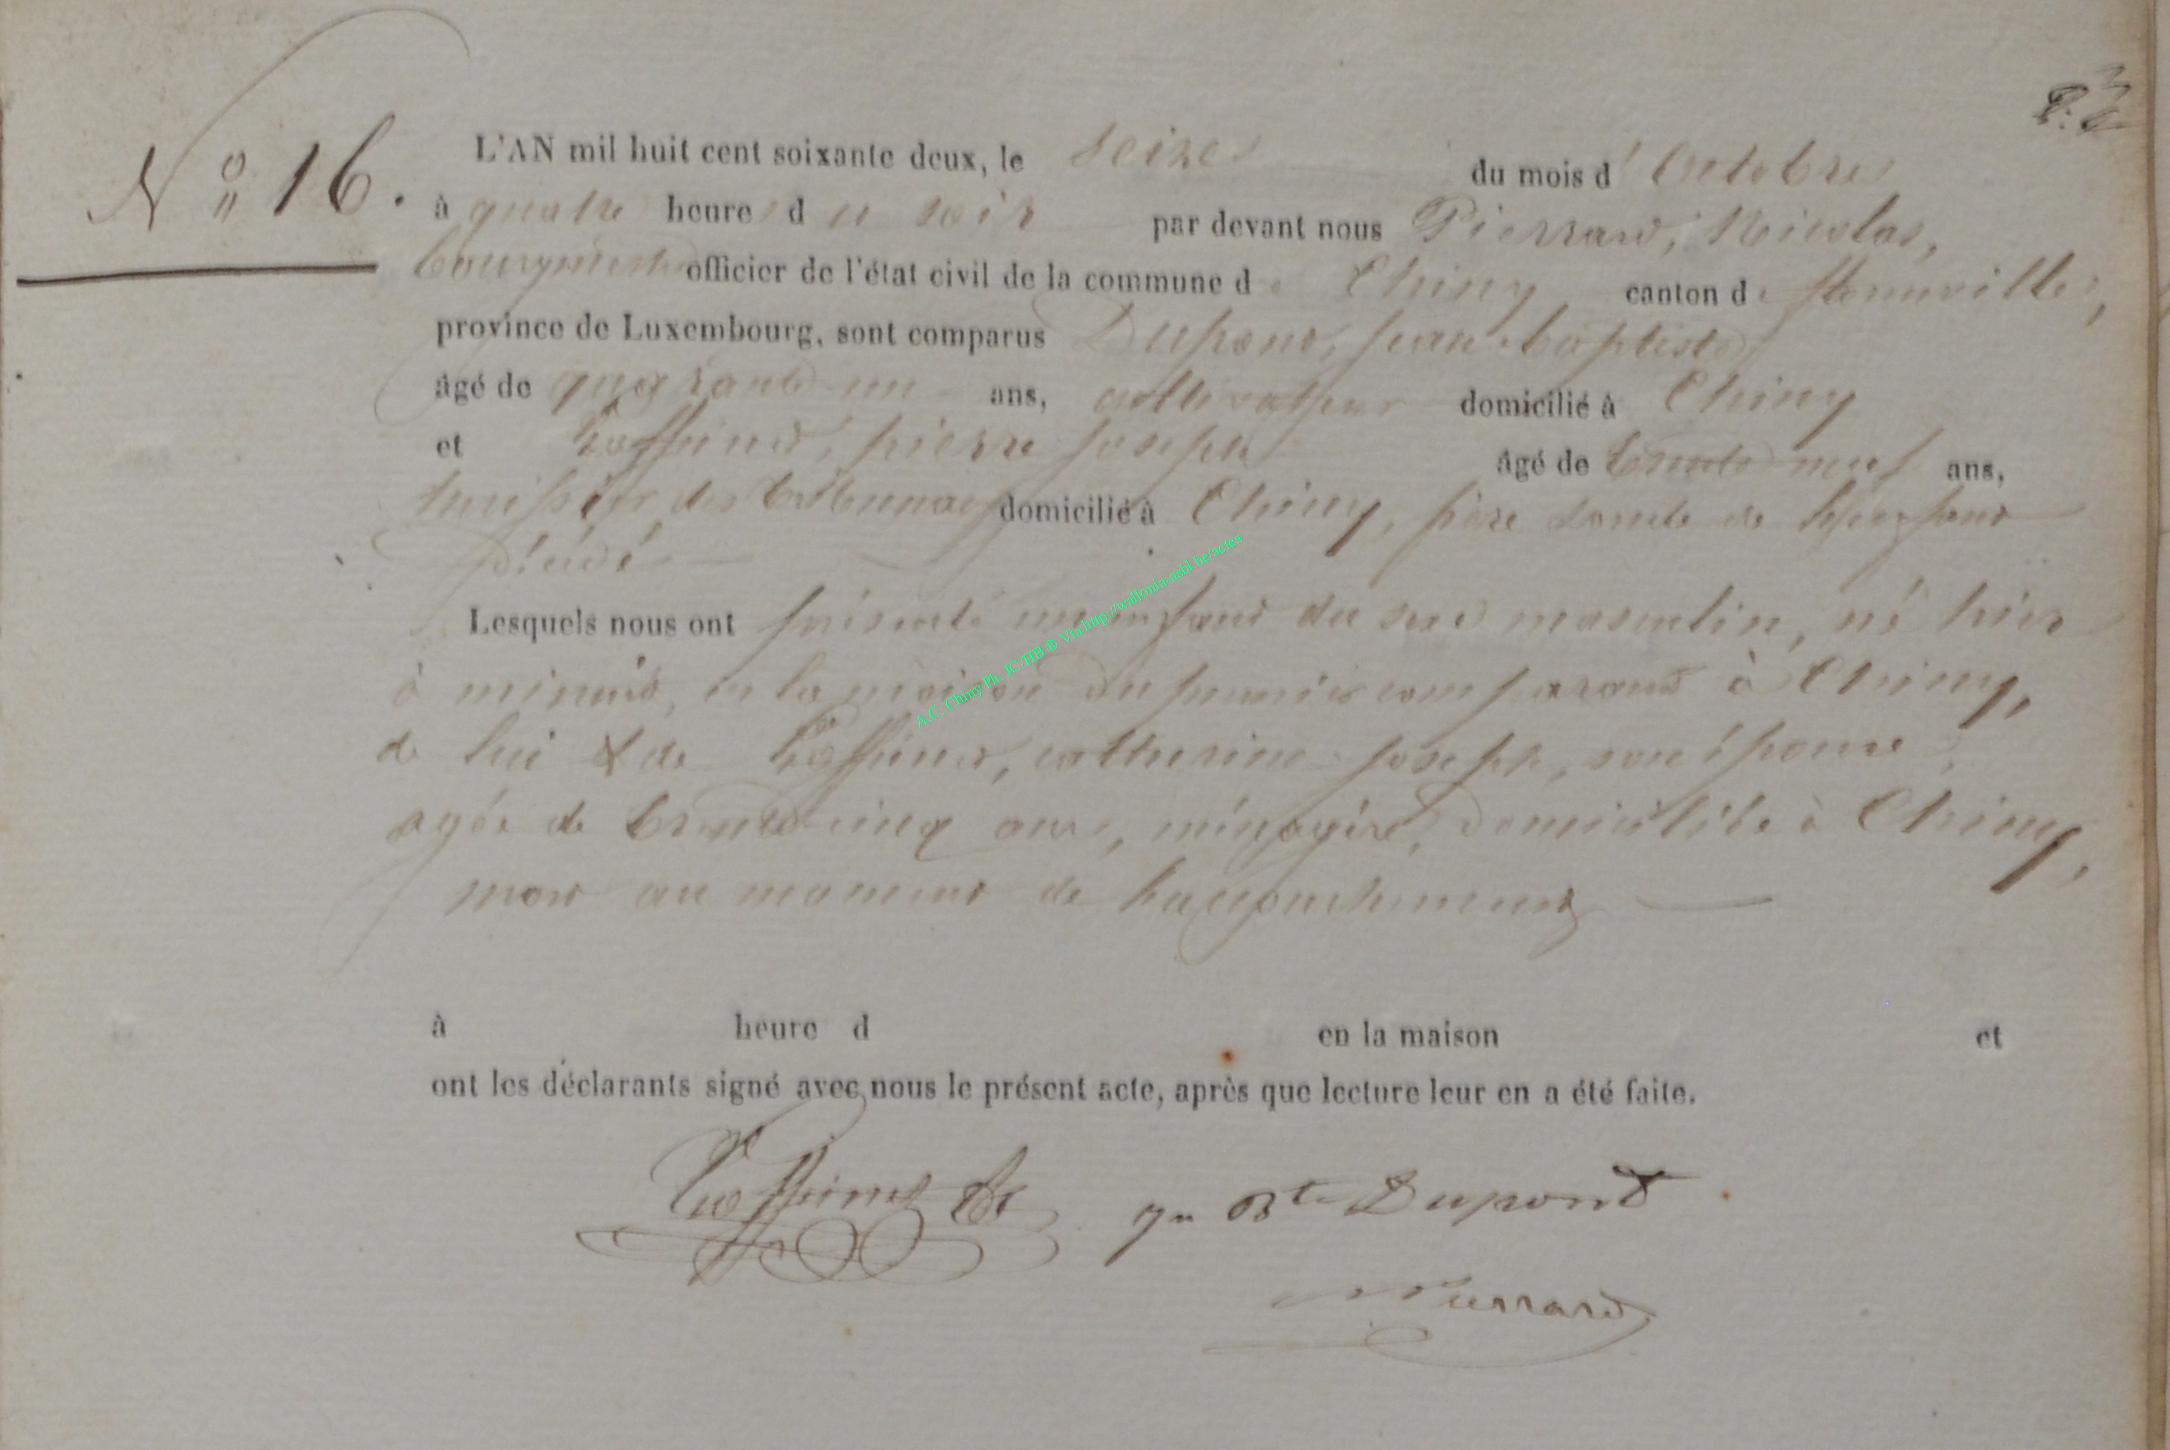 N° 16.
L'AN mil huit cent soixante deux, le seize du mois d'Octobre
à quatre heures du soir par devant nous Pierrard, Nicolas,
bourgmestre officier de l'état civil de la commune de Chiny canton de florenville,
province de Luxembourg, sont comparus Dupont, jean baptiste
âgé de quarante-un ans, cultivateur domicilié à Chiny
et pierre joseph âgé de trente-neuf ans,
huissier des tribunaux domicilié à Chiny, de l'enfant
décédé
Lesquels nous ont présenté un enfant du sexe masculin, né hier
à minuit, en la maison du premier comparant à Chiny,
de lui & de catherine joseph, son épouse,
agée de trente-cinq ans, ménagère, domiciliée à Chiny,
mort au moment de l'accouchement
à heure d en la maison et
ont les déclarants signé avec nous le présent acte, après que lecture leur en a été faite.
Jn Bte Dupont
Pierrard
A.C. Chiny Ph. JC-HB ® Via http://wallonia-asbl.be/actes